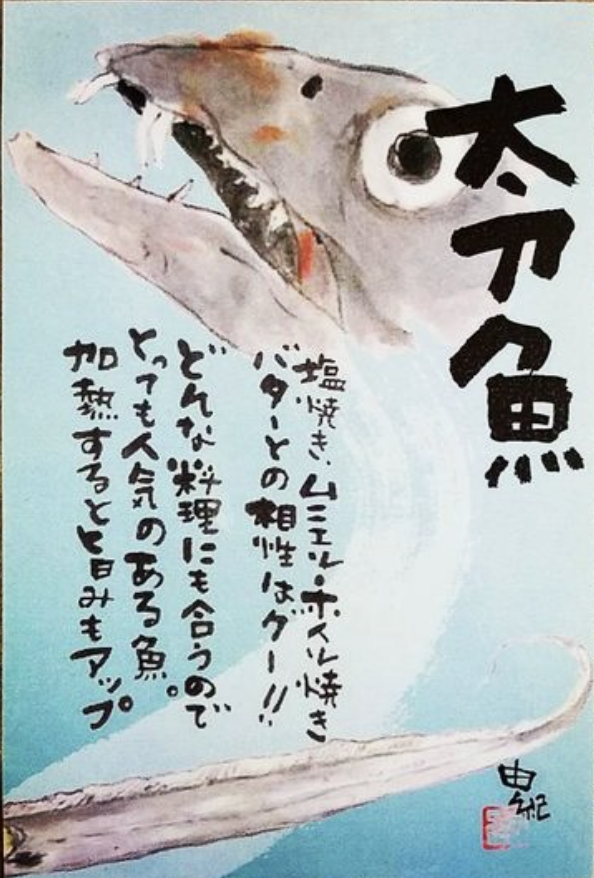 太刀魚
塩焼き、ムニエル・ホイル焼き
バターとの相性はグー!!
どんな料理にも合うので
とっても人気のある魚。
加熱すると旨みもアップ
由紀